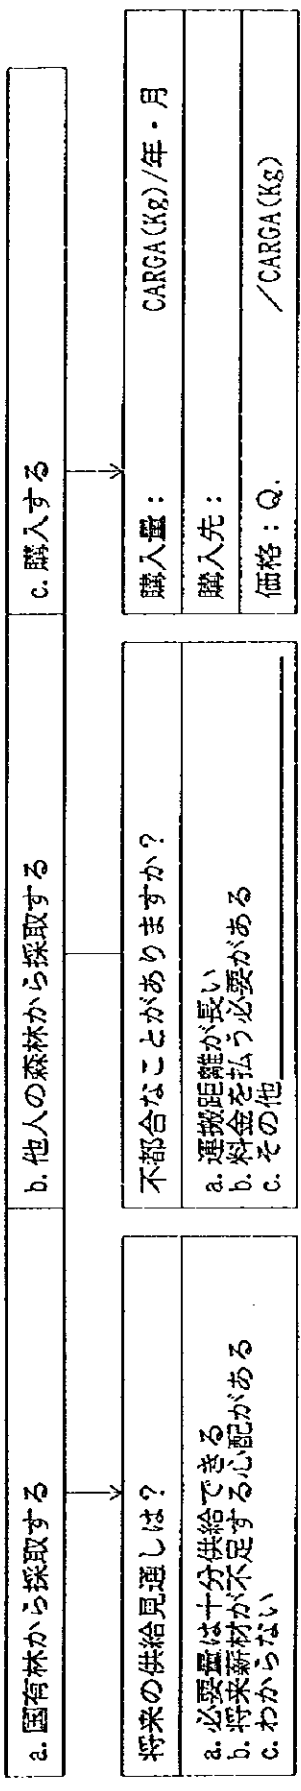 a. 国有林から採取する
b. 他人の森林から採取する
c. 購入する
将来の供給見通しは？
a. 必要量は十分供給できる
b. 将来薪材が不足する心配がある
c. わからない
不都合なことがありますか？
a. 運搬距離が長い
b. 料金を払う必要がある
c. その他
購入量： CARGA(Kg)/年・月
購入先：
価格：Q. /CARGA(Kg)